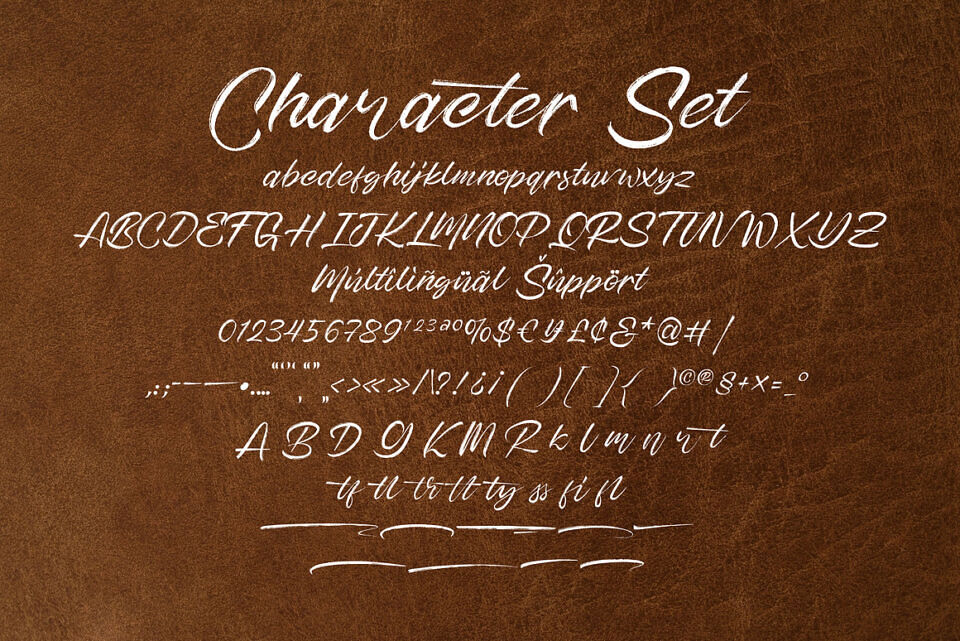 Character Set
abcdefghijklmnopqrstuvwxyz
ABCDEFGHIJKLMNOPQRSTUVWXYZ
Múltîlìñgüãl Šûppört
0123456789¹²³ªº%$€¥£¢&*@#/
,:;-–—•.…“”‘’“”‚„<>«»/\?!¿¡()[]{}©®§+×=_°
A B D Y K M R k l m n r t
tf tl tr tt ty ss fi fl